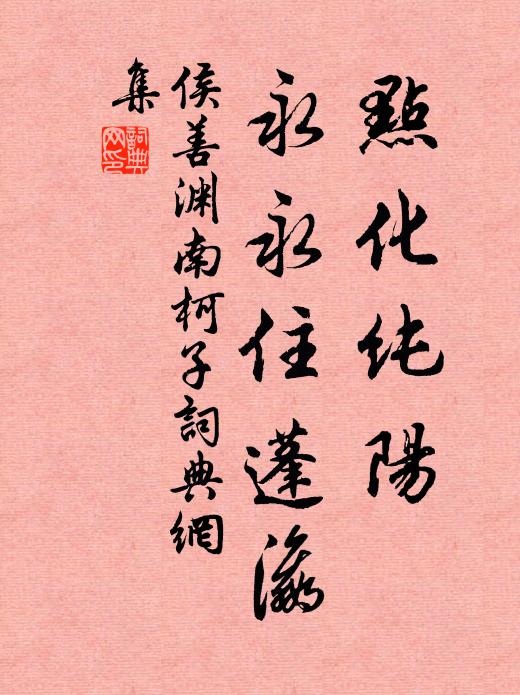 點化純陽
永永住蓬瀛
侯善渊南柯子詞典網
集
詞典
网印